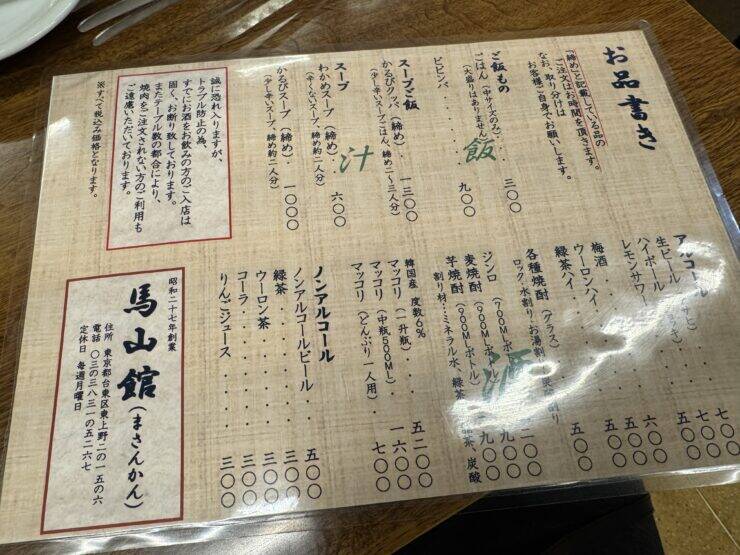 お品書き
「締め」と記載している品の
ご注文はお時間を頂きます。
なお、取り分けは
お客様ご自身でお願いします。
ご飯もの
飯
ごはん(中サイズのみ)・三〇〇
(大盛りはありません)
ビビンバ・・・・・・九〇〇
スープご飯
かるびクッパ(締め)・一三〇〇
(少し辛いスープごはん、締め二〜三人分)
スープ
汁
わかめスープ(締め)・六〇〇
(辛くないスープ、締め約二人分)
かるびスープ(締め)・一〇〇〇
(少し辛いスープ、締め約二人分)
誠に恐れ入りますが、
トラブル防止の為、
すでにお酒をお飲みの方のご入店は
固く、お断り致しております。
またテーブル数の都合により、
焼肉をご注文されない方のご利用も
ご遠慮いただいております。
※すべて税込み価格となります。
アルコール
酒
生ビール
七〇〇
ハイボール
七〇〇
レモンサワー
六〇〇
梅酒
五〇〇
ウーロンハイ
五〇〇
緑茶ハイ・・・・・五〇〇
各種焼酎(グラス)
ロック、水割り、お湯割り
ジンロ(700MLボトル)
麦焼酎(900MLボトル)
芋焼酎(900MLボトル)
割り材…ミネラル水、緑茶
炭酸
韓国産 度数6%
マッコリ(一升瓶)・・五二〇〇
マッコリ(中瓶500ML)・一六〇〇
マッコリ(どんぶり一人用)・七〇〇
ノンアルコール
ノンアルコールビール・・五〇〇
緑茶・・・・・・・三〇〇
ウーロン茶・・・・・三〇〇
コーラ・・・・・・三〇〇
りんごジュース・・・・三〇〇
昭和二十七年創業
馬山館(まさんかん)
住所 東京都台東区東上野二の一五の六
電話 〇三の三八三一の五二六七
定休日 毎週月曜日